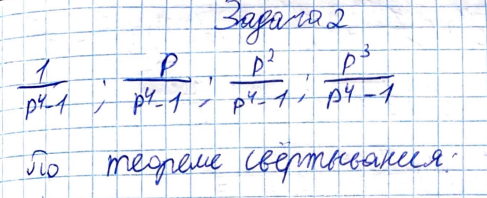 Задача 2
1/(p⁴-1) ; p/(p⁴-1) ; p²/(p⁴-1) ; p³/(p⁴-1)
По теореме свёртывания: